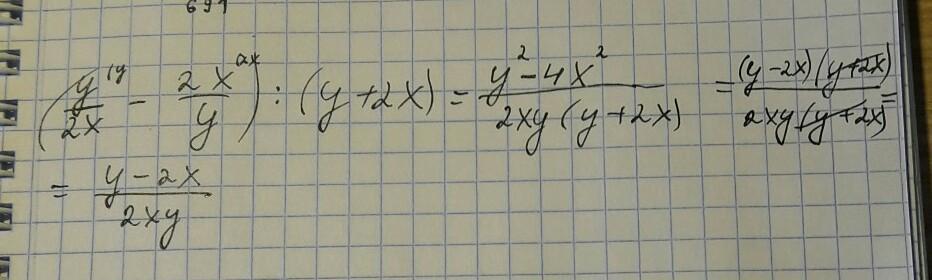 691
(y/2x ^{1y} - 2x/y ^{2x}) : (y+2x) = (y²-4x²)/(2xy(y+2x)) = ((y-2x)(y+2x))/(2xy(y+2x)) =
= (y-2x)/(2xy)